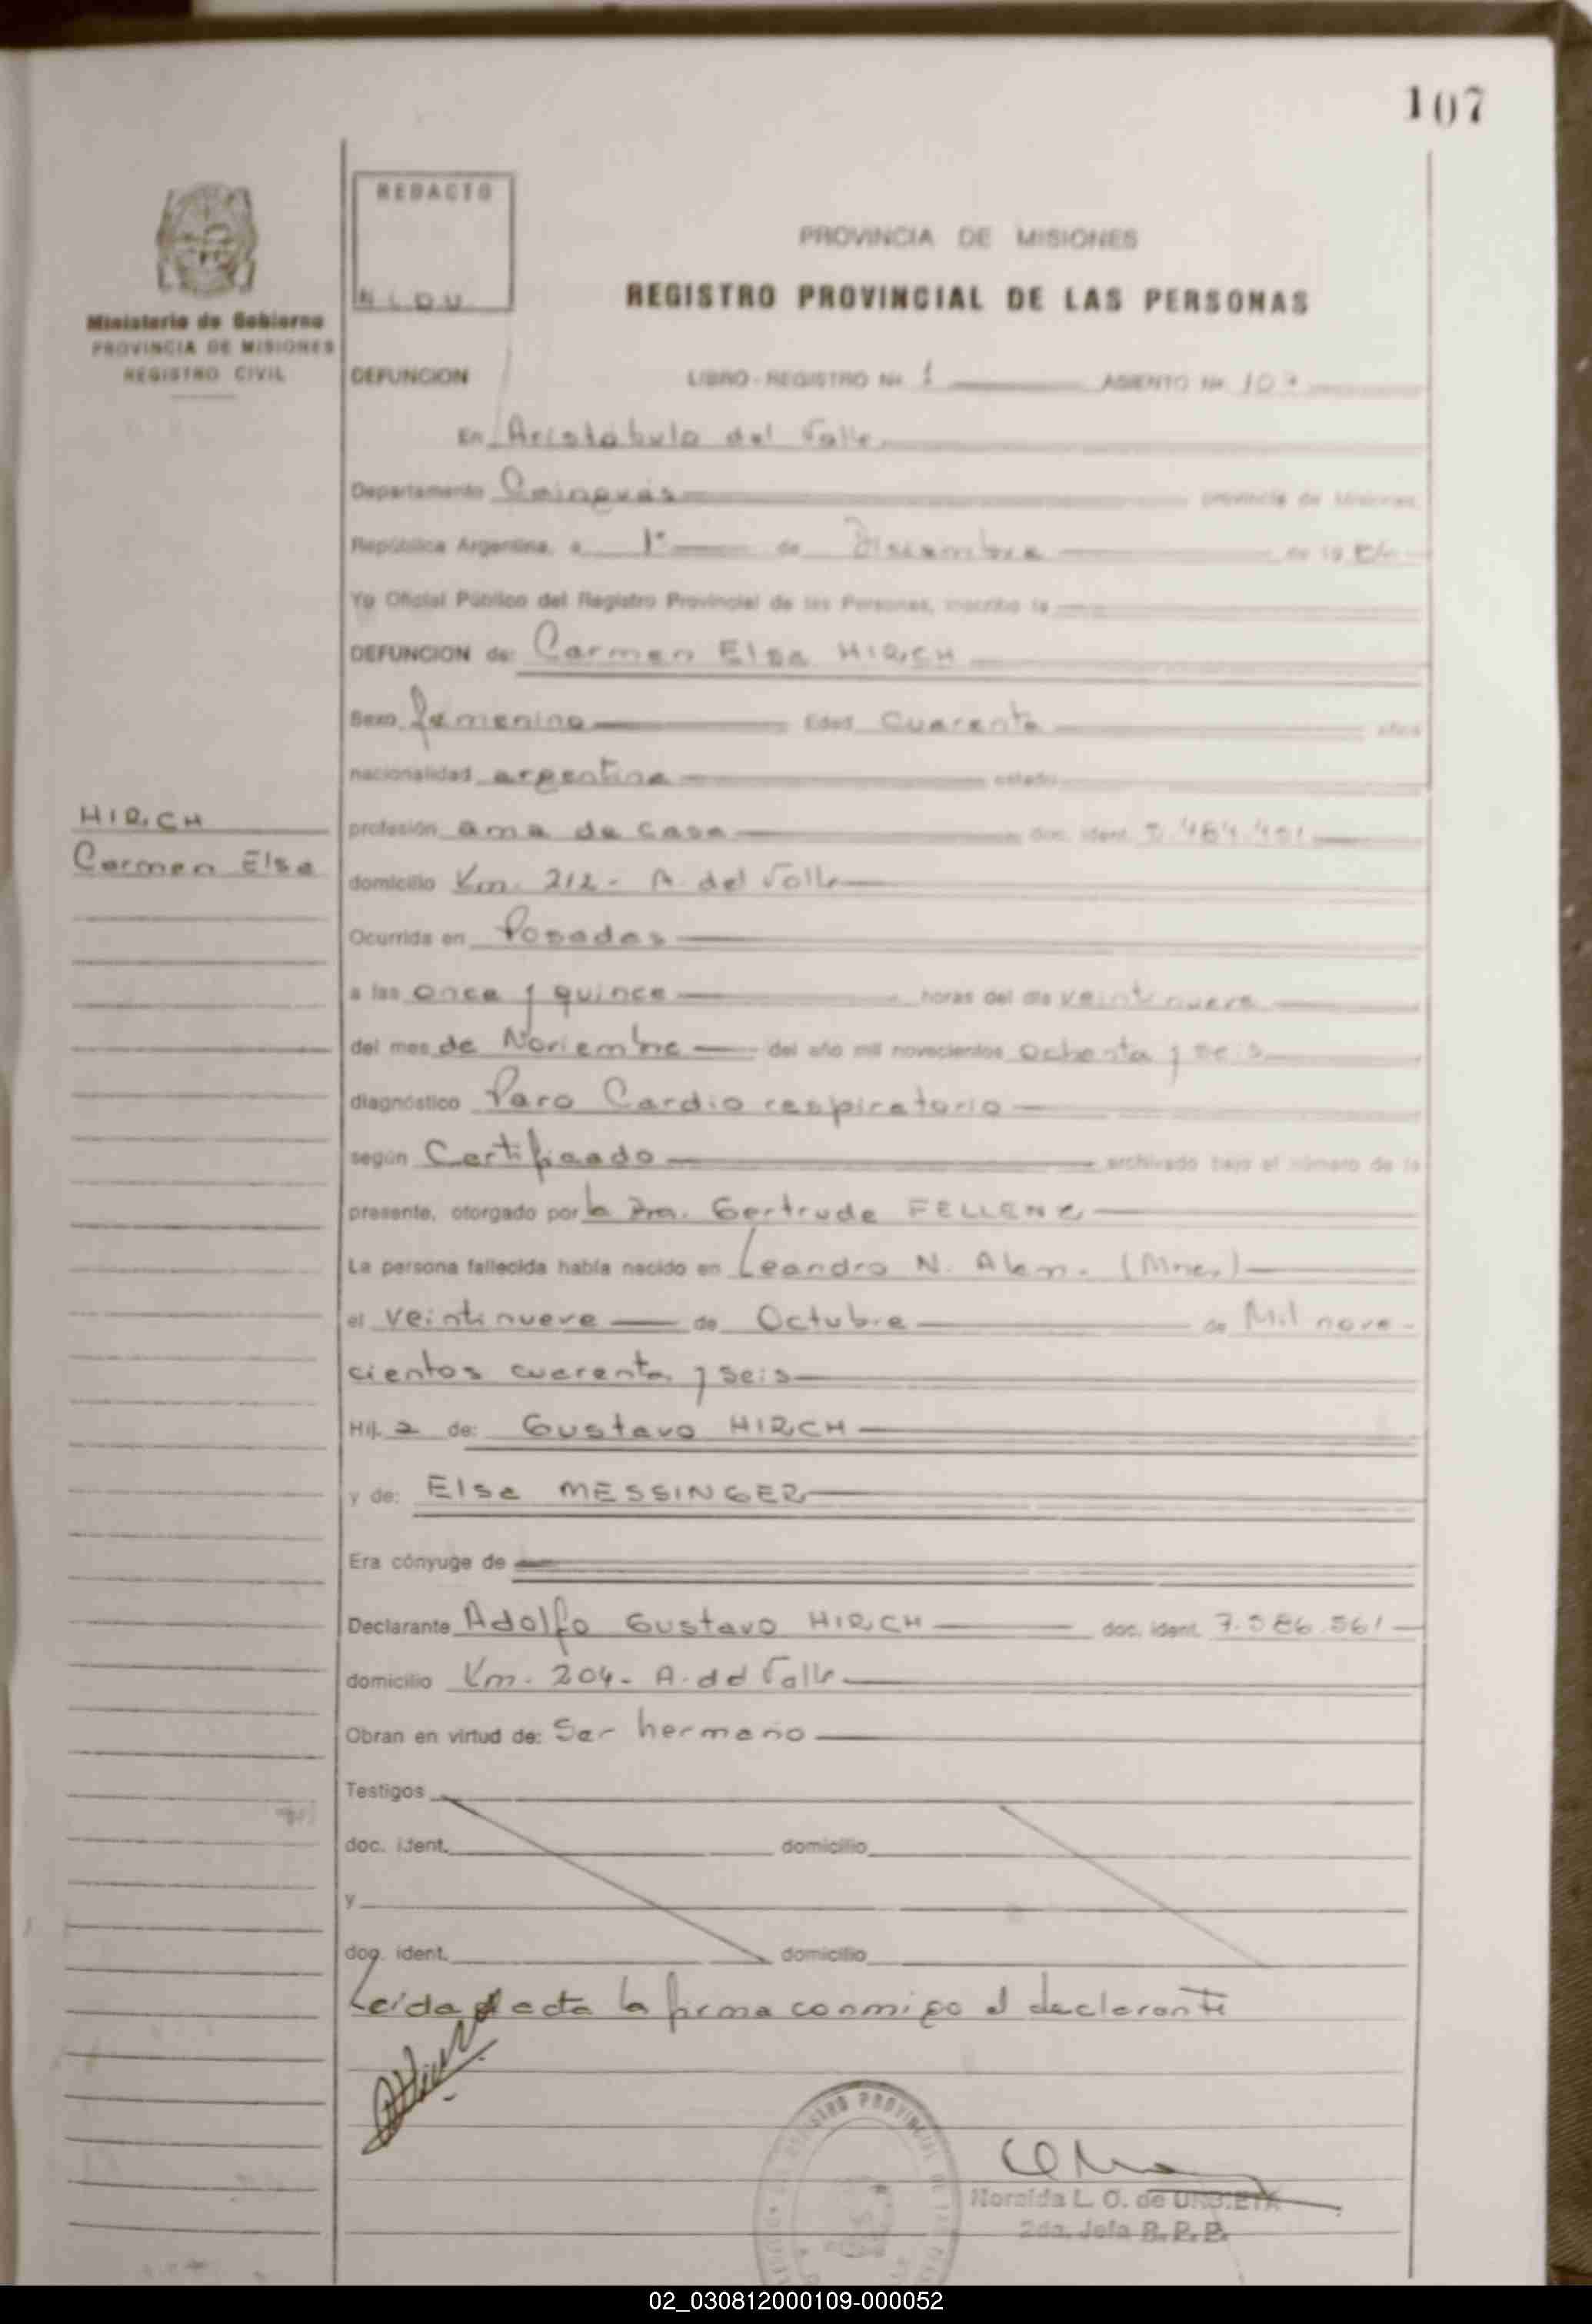 107
REDACTO
N. L. D. U.
Ministerio de Gobierno
PROVINCIA DE MISIONES
REGISTRO CIVIL
PROVINCIA DE MISIONES
REGISTRO PROVINCIAL DE LAS PERSONAS
DEFUNCION LIBRO - REGISTRO Nº. 1 ASIENTO Nº. 107
En Aristóbulo del Valle
Departamento Cainguás provincia de Misiones,
República Argentina, a 1º de Diciembre de 19 86
Yo Oficial Público del Registro Provincial de las Personas, inscribo la
DEFUNCION de: Carmen Elsa HIRCH
Sexo femenino Edad Cuarenta años
nacionalidad argentina estado
HIRCH
Carmen Elsa
profesión ama de casa doc. ident.
domicilio Km. 212 - A. del Valle
Ocurrida en Posadas
a las once y quince horas del día veintinueve
del mes de Noviembre del año mil novecientos ochenta y seis
diagnóstico Paro Cardio respiratorio
según Certificado archivado bajo el número de la
presente, otorgado por la Dra. Gertrude FELLENZ
La persona fallecida había nacido en Leandro N. Alem. (Mnes)
el veintinueve de Octubre de Mil nove-
cientos cuarenta y seis
Hij a de: Gustavo HIRCH
y de: Elsa MESSINGER
Era cónyuge de
Declarante Adolfo Gustavo HIRCH doc. ident. 7.586.561
domicilio Km. 204 - A. del Valle
Obran en virtud de: Ser hermano
Testigos
doc. ident. domicilio
y
doc. ident. domicilio
Leida el acta la firma conmigo el declarante
REGISTRO PROVINCIAL DE LAS
Noraida L. O. de URBIETA
2da. Jefa R. P. P.
02_030812000109-000052